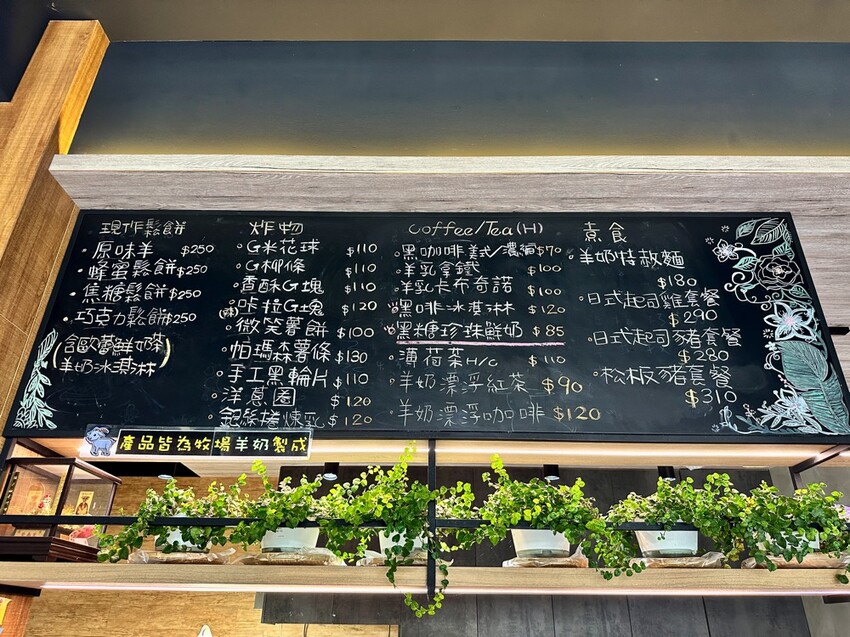 現作鬆餅
·原味羊 $250
·蜂蜜鬆餅 $250
·焦糖鬆餅 $250
·巧克力鬆餅 $250
(含歐蕾鮮奶茶
羊奶冰淇淋)
炸物
·G米花球 $110
·G柳條 $110
·香酥G塊 $110
·咔拉G塊 $120
(辣)
·微笑薯餅 $100
·帕瑪森薯條 $130
·手工黑輪片 $110
·洋蔥圈 $120
·銀絲捲煉乳 $120
Coffee/Tea(H)
·黑咖啡美式/濃縮 $70
·羊乳拿鐵 $100
·羊乳卡布奇諾 $100
·黑啡冰淇淋 $120
·黑糖珍珠鮮奶 $85
·薄荷茶H/C $110
·羊奶漂浮紅茶 $90
·羊奶漂浮咖啡 $120
素食
·羊奶特敘麵
$180
·日式起司雞套餐
$290
·日式起司豬套餐
$280
·松板豬套餐
$310
產品皆為牧場羊奶製成